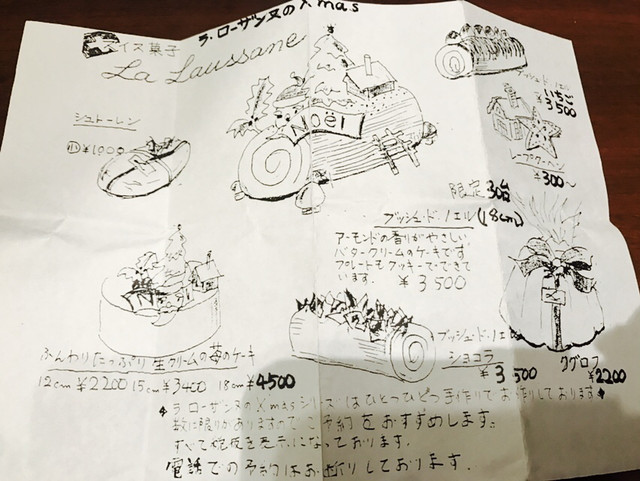 ラ・ローザンヌのXmas
スイス菓子
La Laussane
Noël
ブッシュ・ド・ノエル
いちご
¥3500
シュトーレン
¥1000
¥300~
限定30台
ブッシュ・ド・ノエル(18cm)
アーモンドの香りがやさしい
バタークリームのケーキです
プレートもクッキーでできて
います。 ¥3500
ふんわりたっぷり生クリームの苺のケーキ
12cm ¥2200 15cm ¥3400 18cm ¥4500
ブッシュ・ド・ノエル
ショコラ
¥3500
クグロフ
¥2200
ラ・ローザンヌのXmasシリーズはひとつひとつ手作りでお作りしております
数に限りがありますのでご予約をおすすめします。
すべて税抜き表示になっております。
電話での予約はお断りしております。